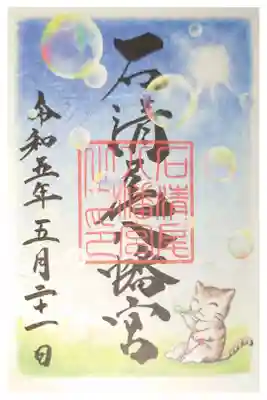 石清尾八幡宮
石清尾
八幡宮
令和五年五月二十一日